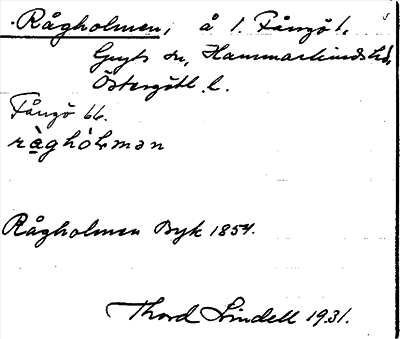 Rågholmen, å l. Fångö l.
Gryts sn, Hammarkinds hd,
Östergötl. l.
Fångö 66.
ràghòlmən
Rågholmen Byk 1854.
Thord Lindell 1931.